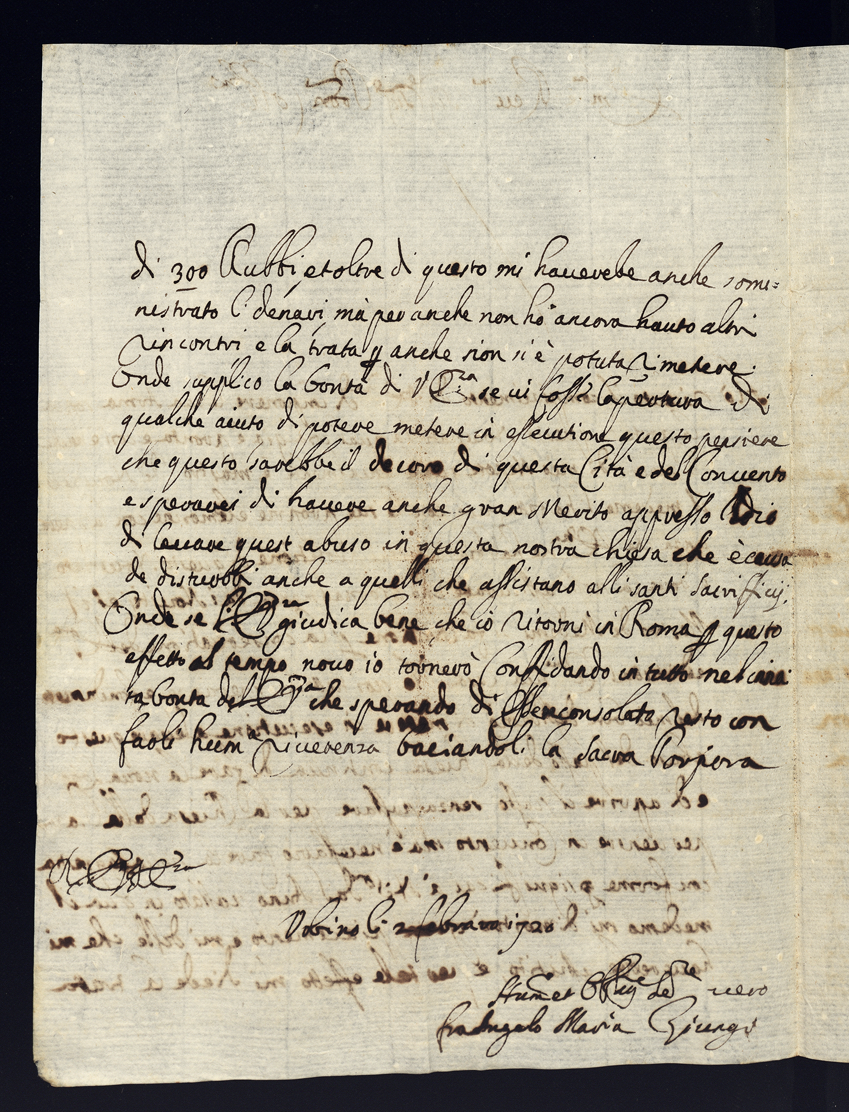 di 300 Rubbi, et oltre di questo mi haverebe anche somi=
nistrato li denari, mà per anche non hò ancora hauto altri
rincontri e la trata p anche non si è potuta rimetere.
Onde supplico la bontà di V Em.za se vi fosse l'apertura di
qualche aiuto di potere metere in essecutione questo pensiere
che questo sarebbe il decoro di questa Cità e del Convento
e sperarei di havere anche gran Merito appresso Idio
di levare quest abuso in questa nostra chiesa che è causa
de disturbbi anche a quelli che assistano alli santi Sacrificij.
Onde se giudica bene che io ritorni in Roma p questo
effetto al tempo novo io tornerò Confidando in tutto nel
ta bonta del che sperando di Esser consolata resto con
riverenza baciandoli la Sacra Porpora
Urbino li 2 febraro 1720
vero
fra Angelo Maria